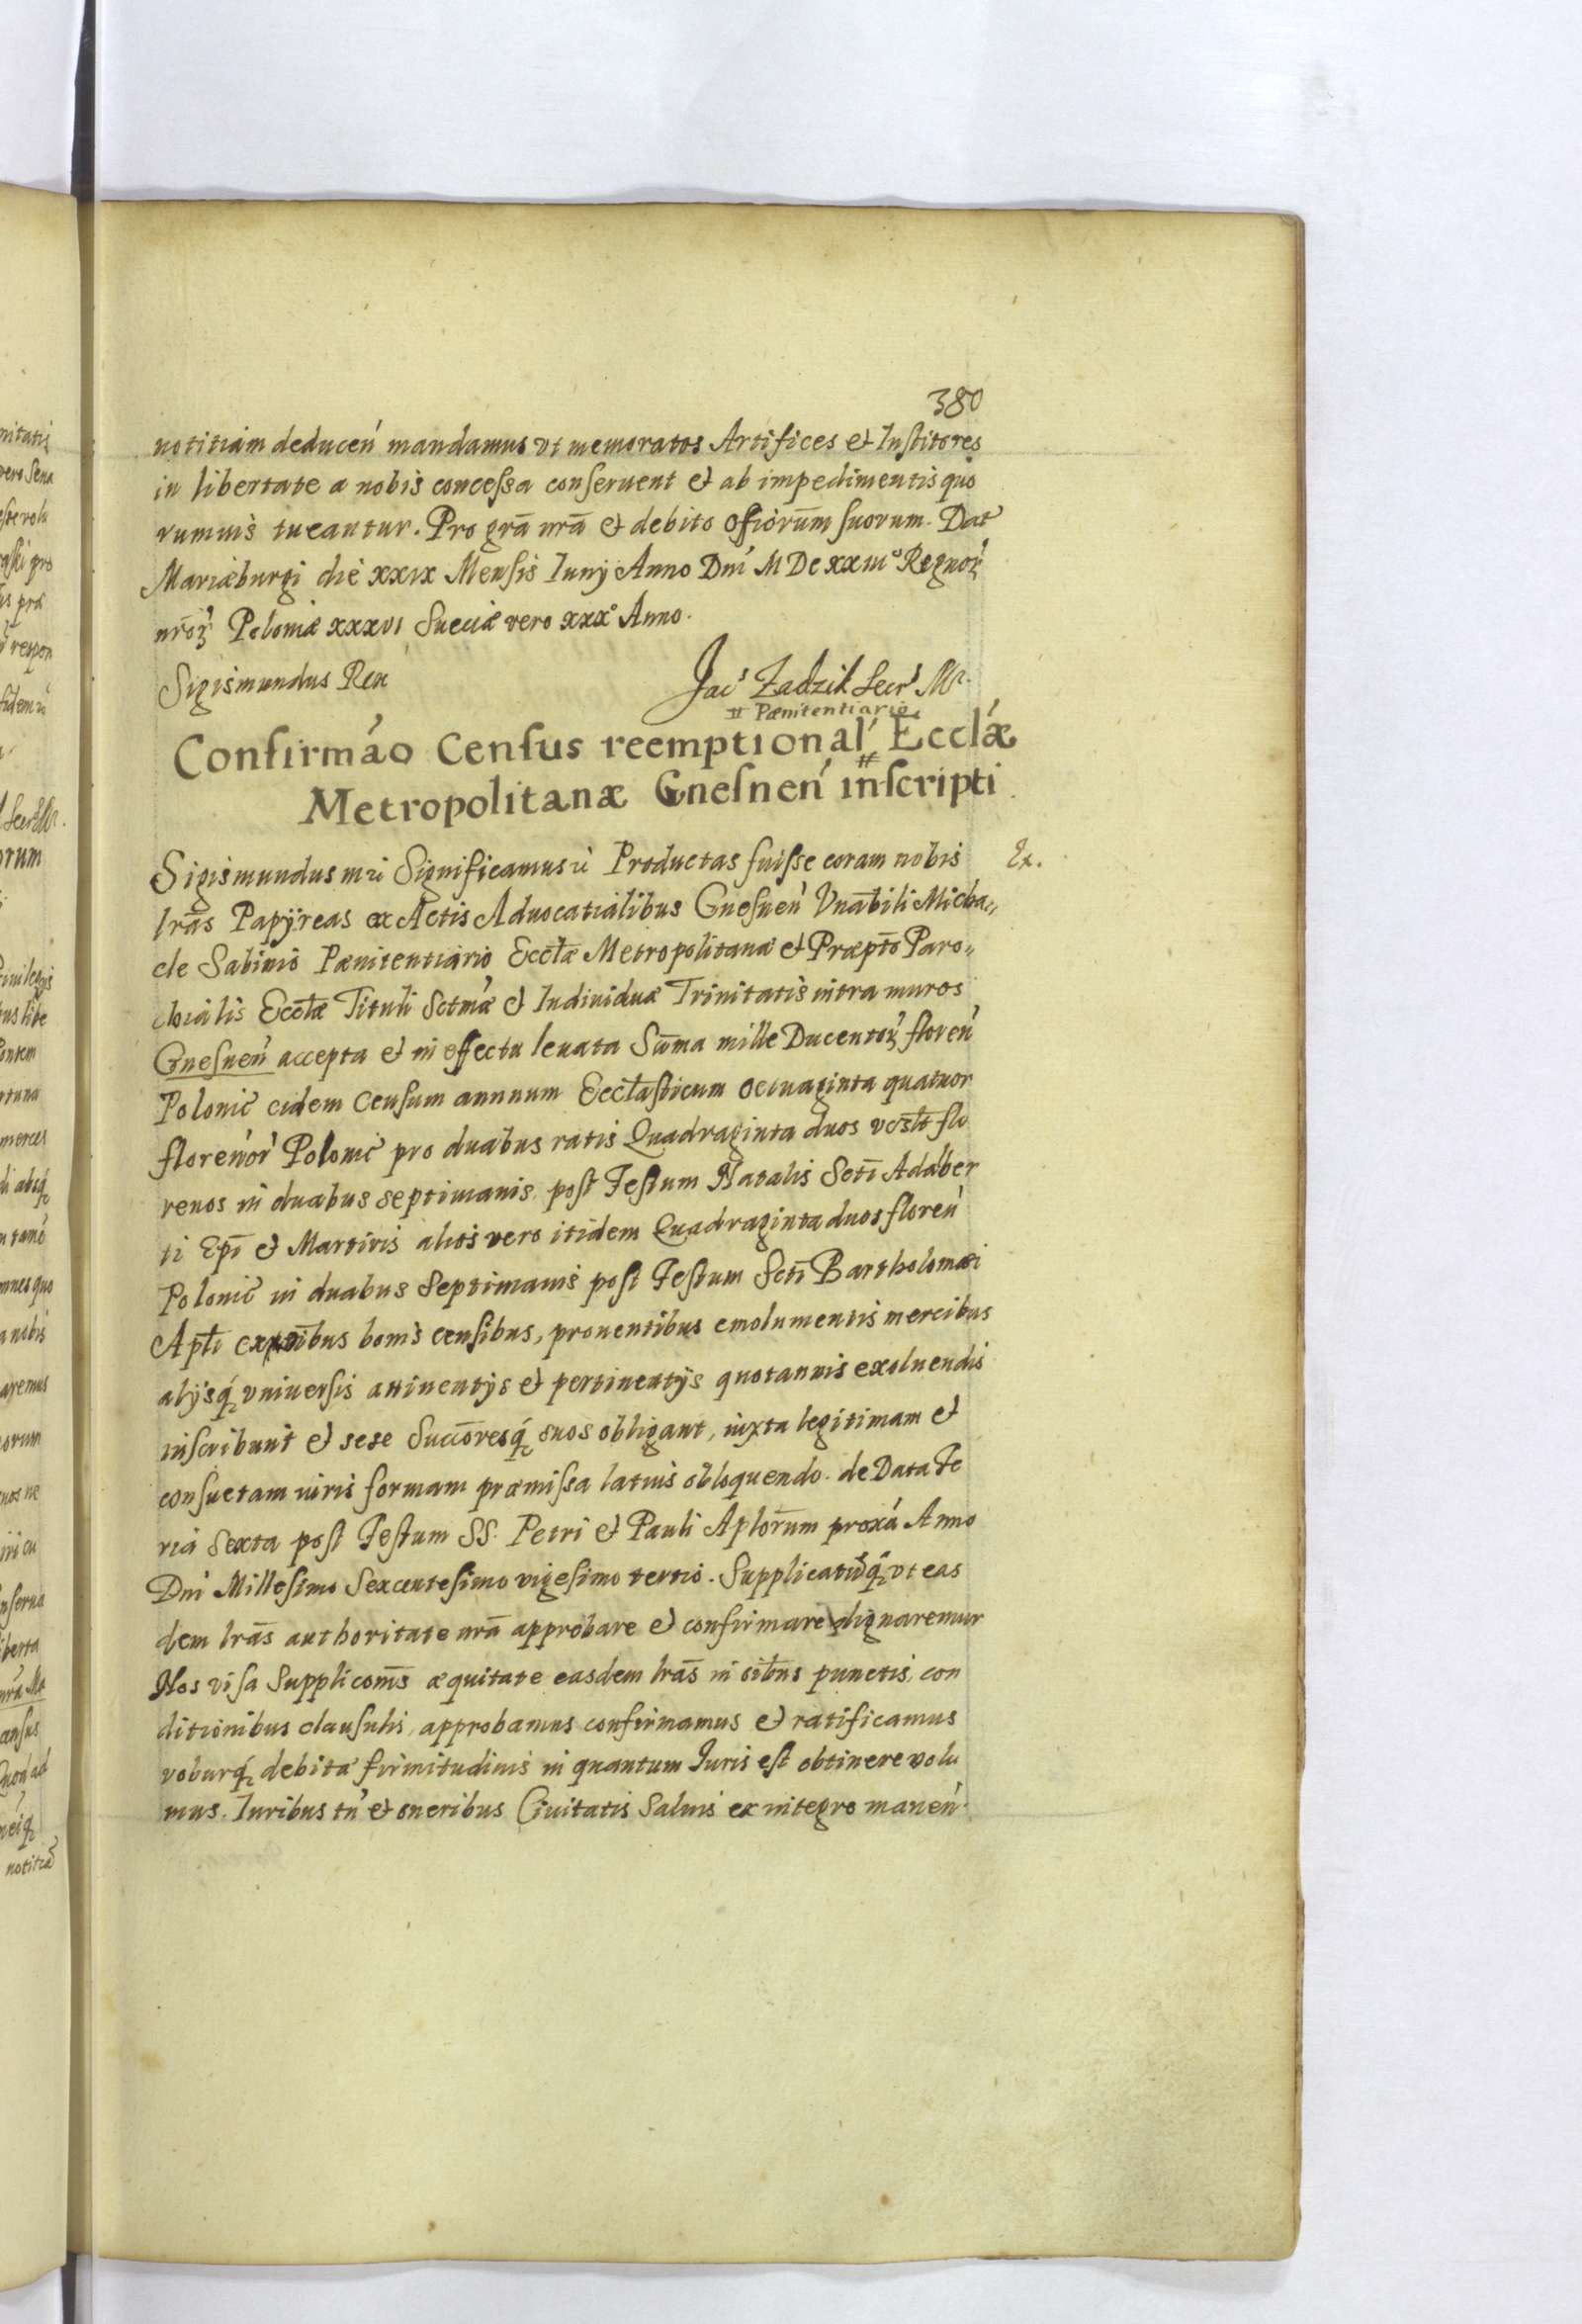 380
notitiam deducen mandamus vt memoratos Artifices et Institores
in libertate a nobis concessa conseruent et ab impedimentis quo
rumuis tueantur. Pro grā nrā et debito offiorūm suorum. Dat
Mariæburgi die XXIX Mensis Iunij Anno Dni M DC XXIIIº Regnoꝝ
nrōꝝ Poloniæ XXXVI Sueciæ vero XXXº Anno.
Sigismundus Rex
Jac Zadzik Secr Mr.
# Pænitentiario
Confirmáo Census reemptional Ecclæ
Metropolitanæ Gnesnen # inscripti
Sigismundus Significamus Productas fuisse coram nobis
Ex.
lrās Papijreas ex Actis Aduocatialibus Gnesnen Vnabili Micha„
ele Sabinio Pænitentiario Ecclæ Metropolitanæ et Præpto Paro„
chialis Ecclæ Tituli Sctmæ et Indiuiduæ Trinitatis intra muros
Gnesnen accepta et in effectu leuata Sūma mille Ducentoꝝ floren
Polonic eidem Censum annuum Ecclasticum octuaginta quatuor
florenor Polonic pro duabus ratis Quadraginta duos vdslt flo
renos in duabus septimanis post Festum Natalis Scti Adalber
ti Epi et Martiris alios vero itidem Quadraginta duos floren
Polonic in duabus Septimanis post Festum Scti Bartholomæi
Apli ex oibus bonis censibus, prouentibus emolumentis mercibus
alijsqꝫ vniuersis attinentijs et pertinentijs quotannis exoluendis
inscribunt et sese Succoresqꝫ suos obligant, iuxta legitimam et
consuetam iuris formam præmissa latius obloquendo. de Data Fe
ria Sexta post Festum SS. Petri et Pauli Aplorum proxá Anno
Dni Millesimo Sexcentesimo vigesimo tertio. Supplicatūqꝫ vt eas
dem lrās authoritate nrā approbare et confirmare dignaremur
Nos visa Supplicoms æquitate easdem lrās in oibus punctis, con
ditionibus clausulis, approbamus confirmamus et ratificamus
roburqꝫ debitæ firmitudinis in quantum Iuris est obtinere volu
mus. Iuribus tn et oneribus Ciuitatis Saluis ex integro manen.